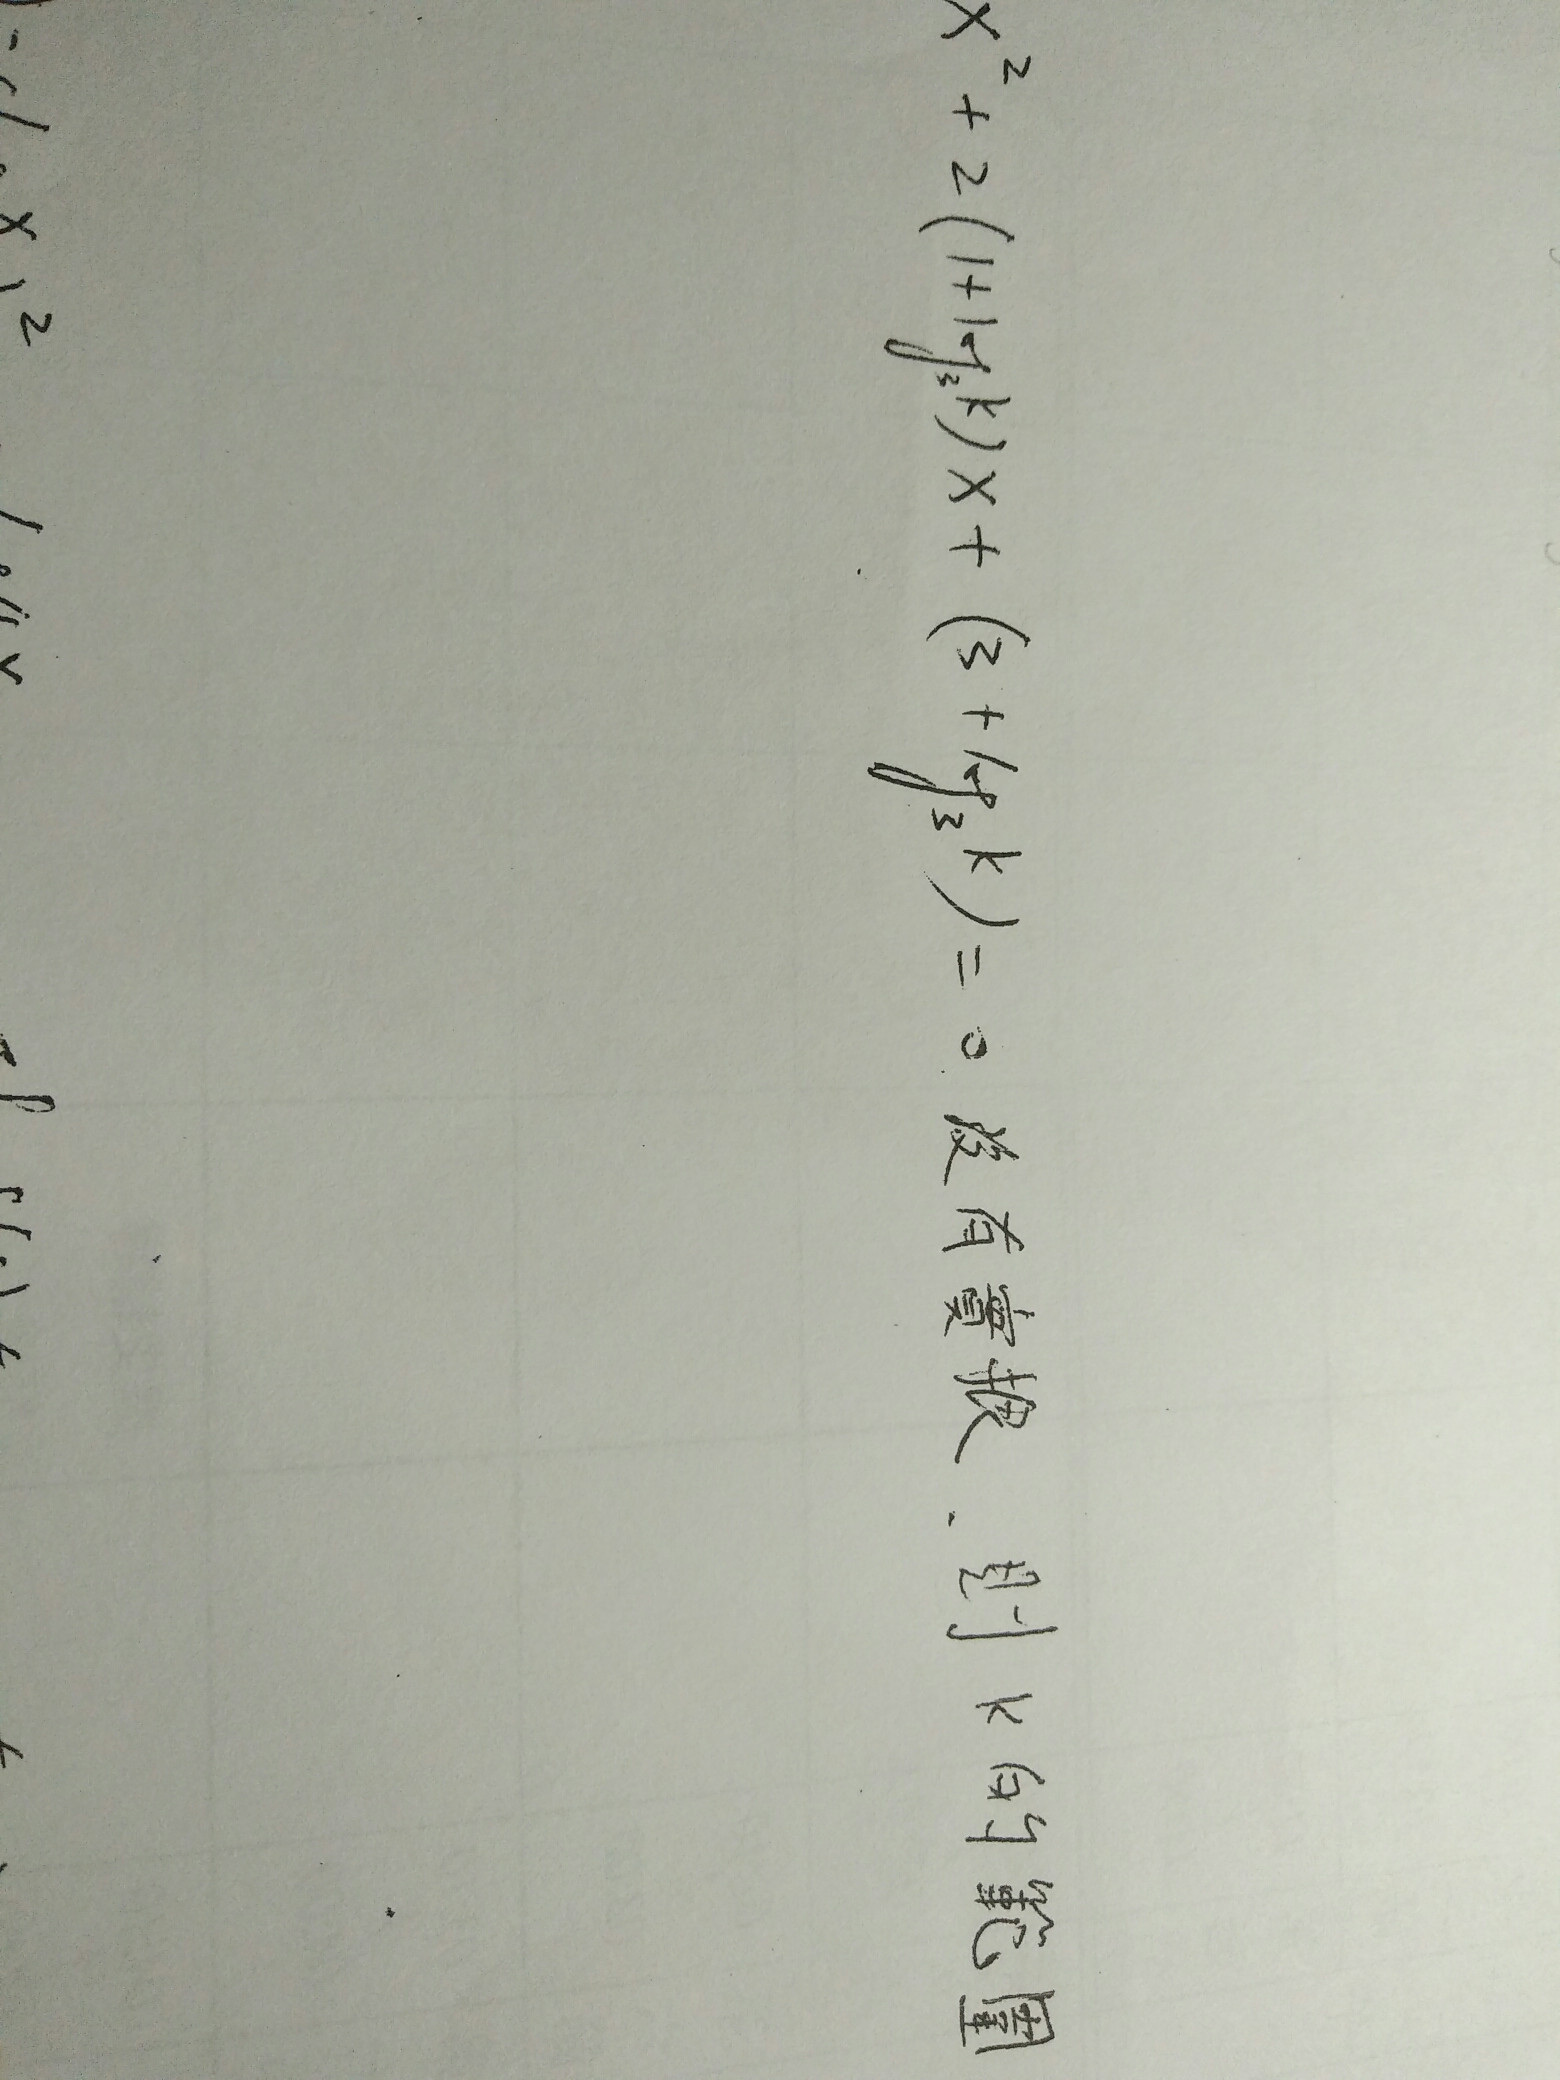 x² + 2(1+log₃k)x + (3+log₃k) = 0 沒有實根、則 k 的範圍